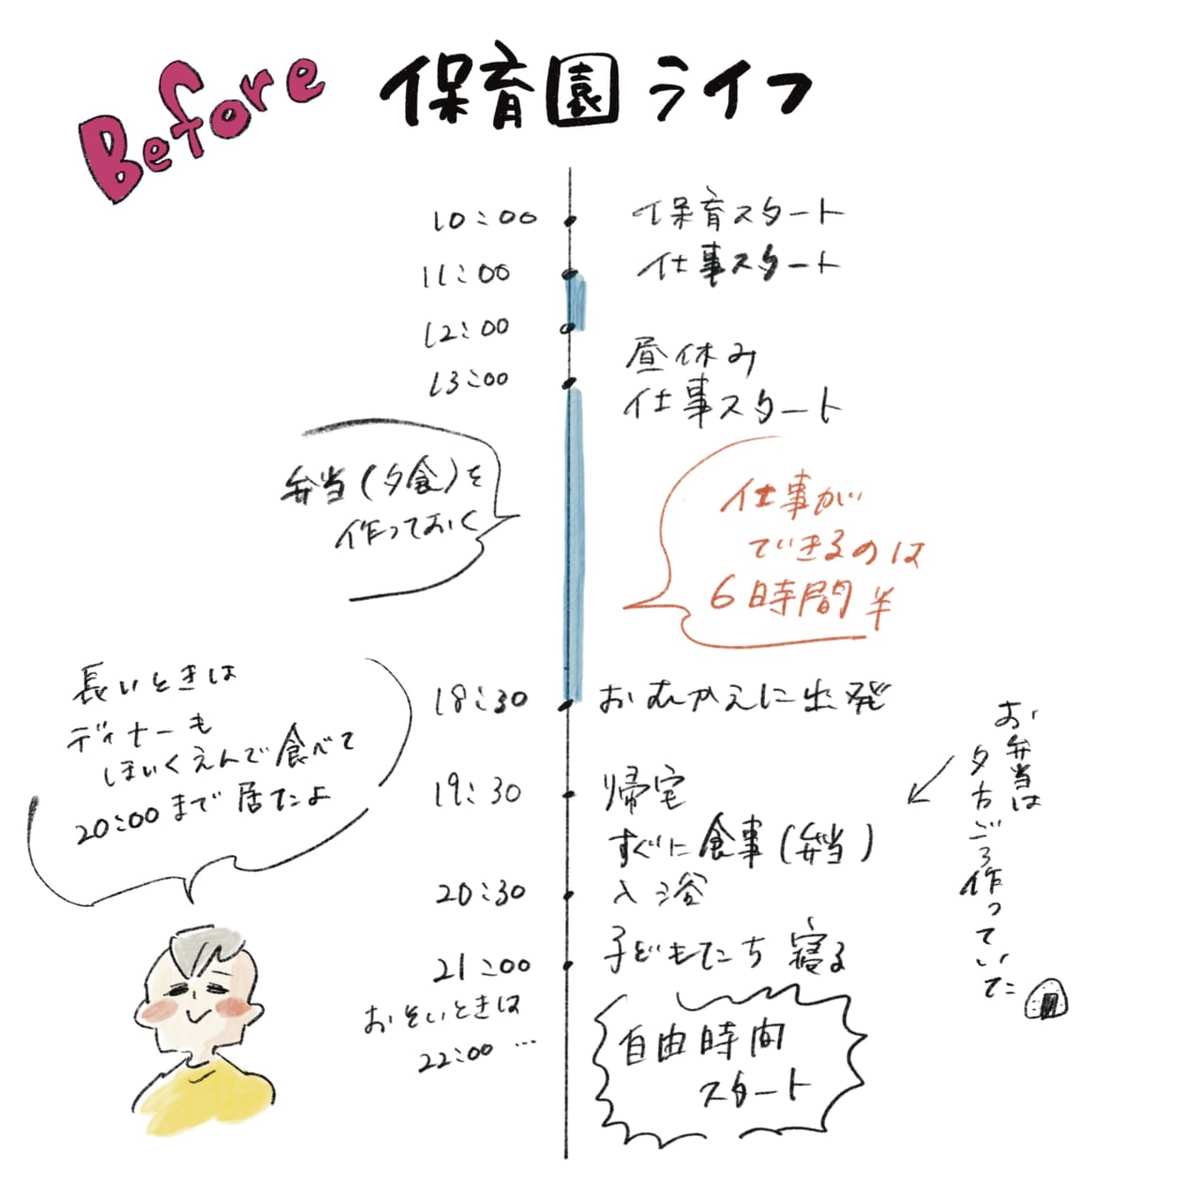 Before 保育園ライフ
10:00 保育スタート
11:00 仕事スタート
12:00
昼休み
13:00
仕事スタート
弁当(夕食)を
作っておく
仕事が
できるのは
6時間半
18:30 おむかえに出発
長いときは
ディナーも
ほいくえんで食べて
20:00まで居たよ
19:30 帰宅
すぐに食事(弁当)
お弁当は
夕方ごろ作っていた
20:30 入浴
21:00 子どもたち寝る
おそいときは
22:00…
自由時間
スタート